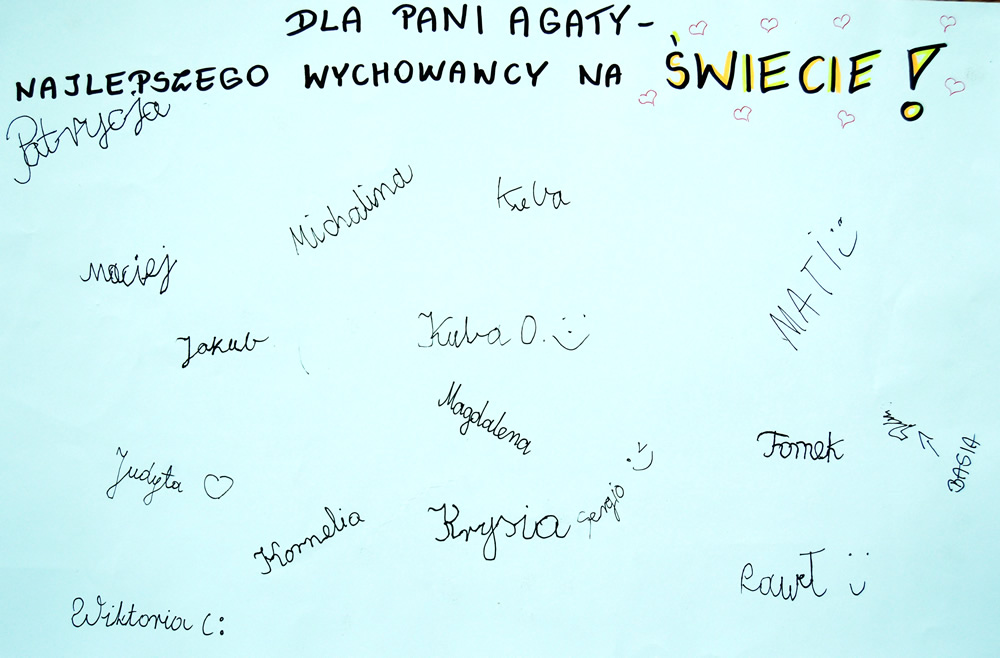 DLA PANI AGATY-
NAJLEPSZEGO WYCHOWAWCY NA ŚWIECIE!
Patrycja
Michalina
Kuba
Maciej
MATI :)
Jakub
Kuba O. :)
Magdalena
Tomek
BASIA
Judyta ♡
Sergio :)
Kornelia
Krysia
Paweł :)
Wiktoria c: